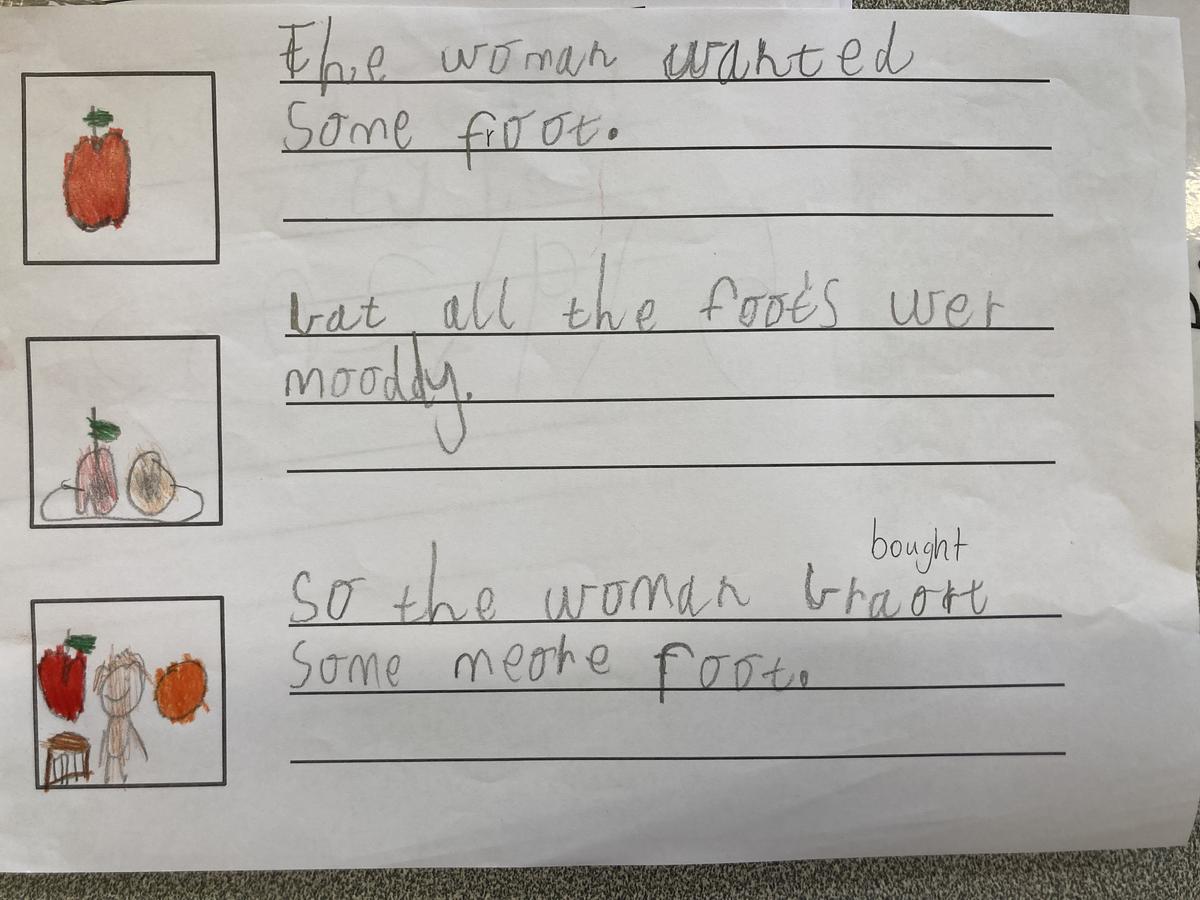 The woman wanted
Some froot.
bat all the foot's wer
mooddy.
bought
So the woman braort
Some meore foot.